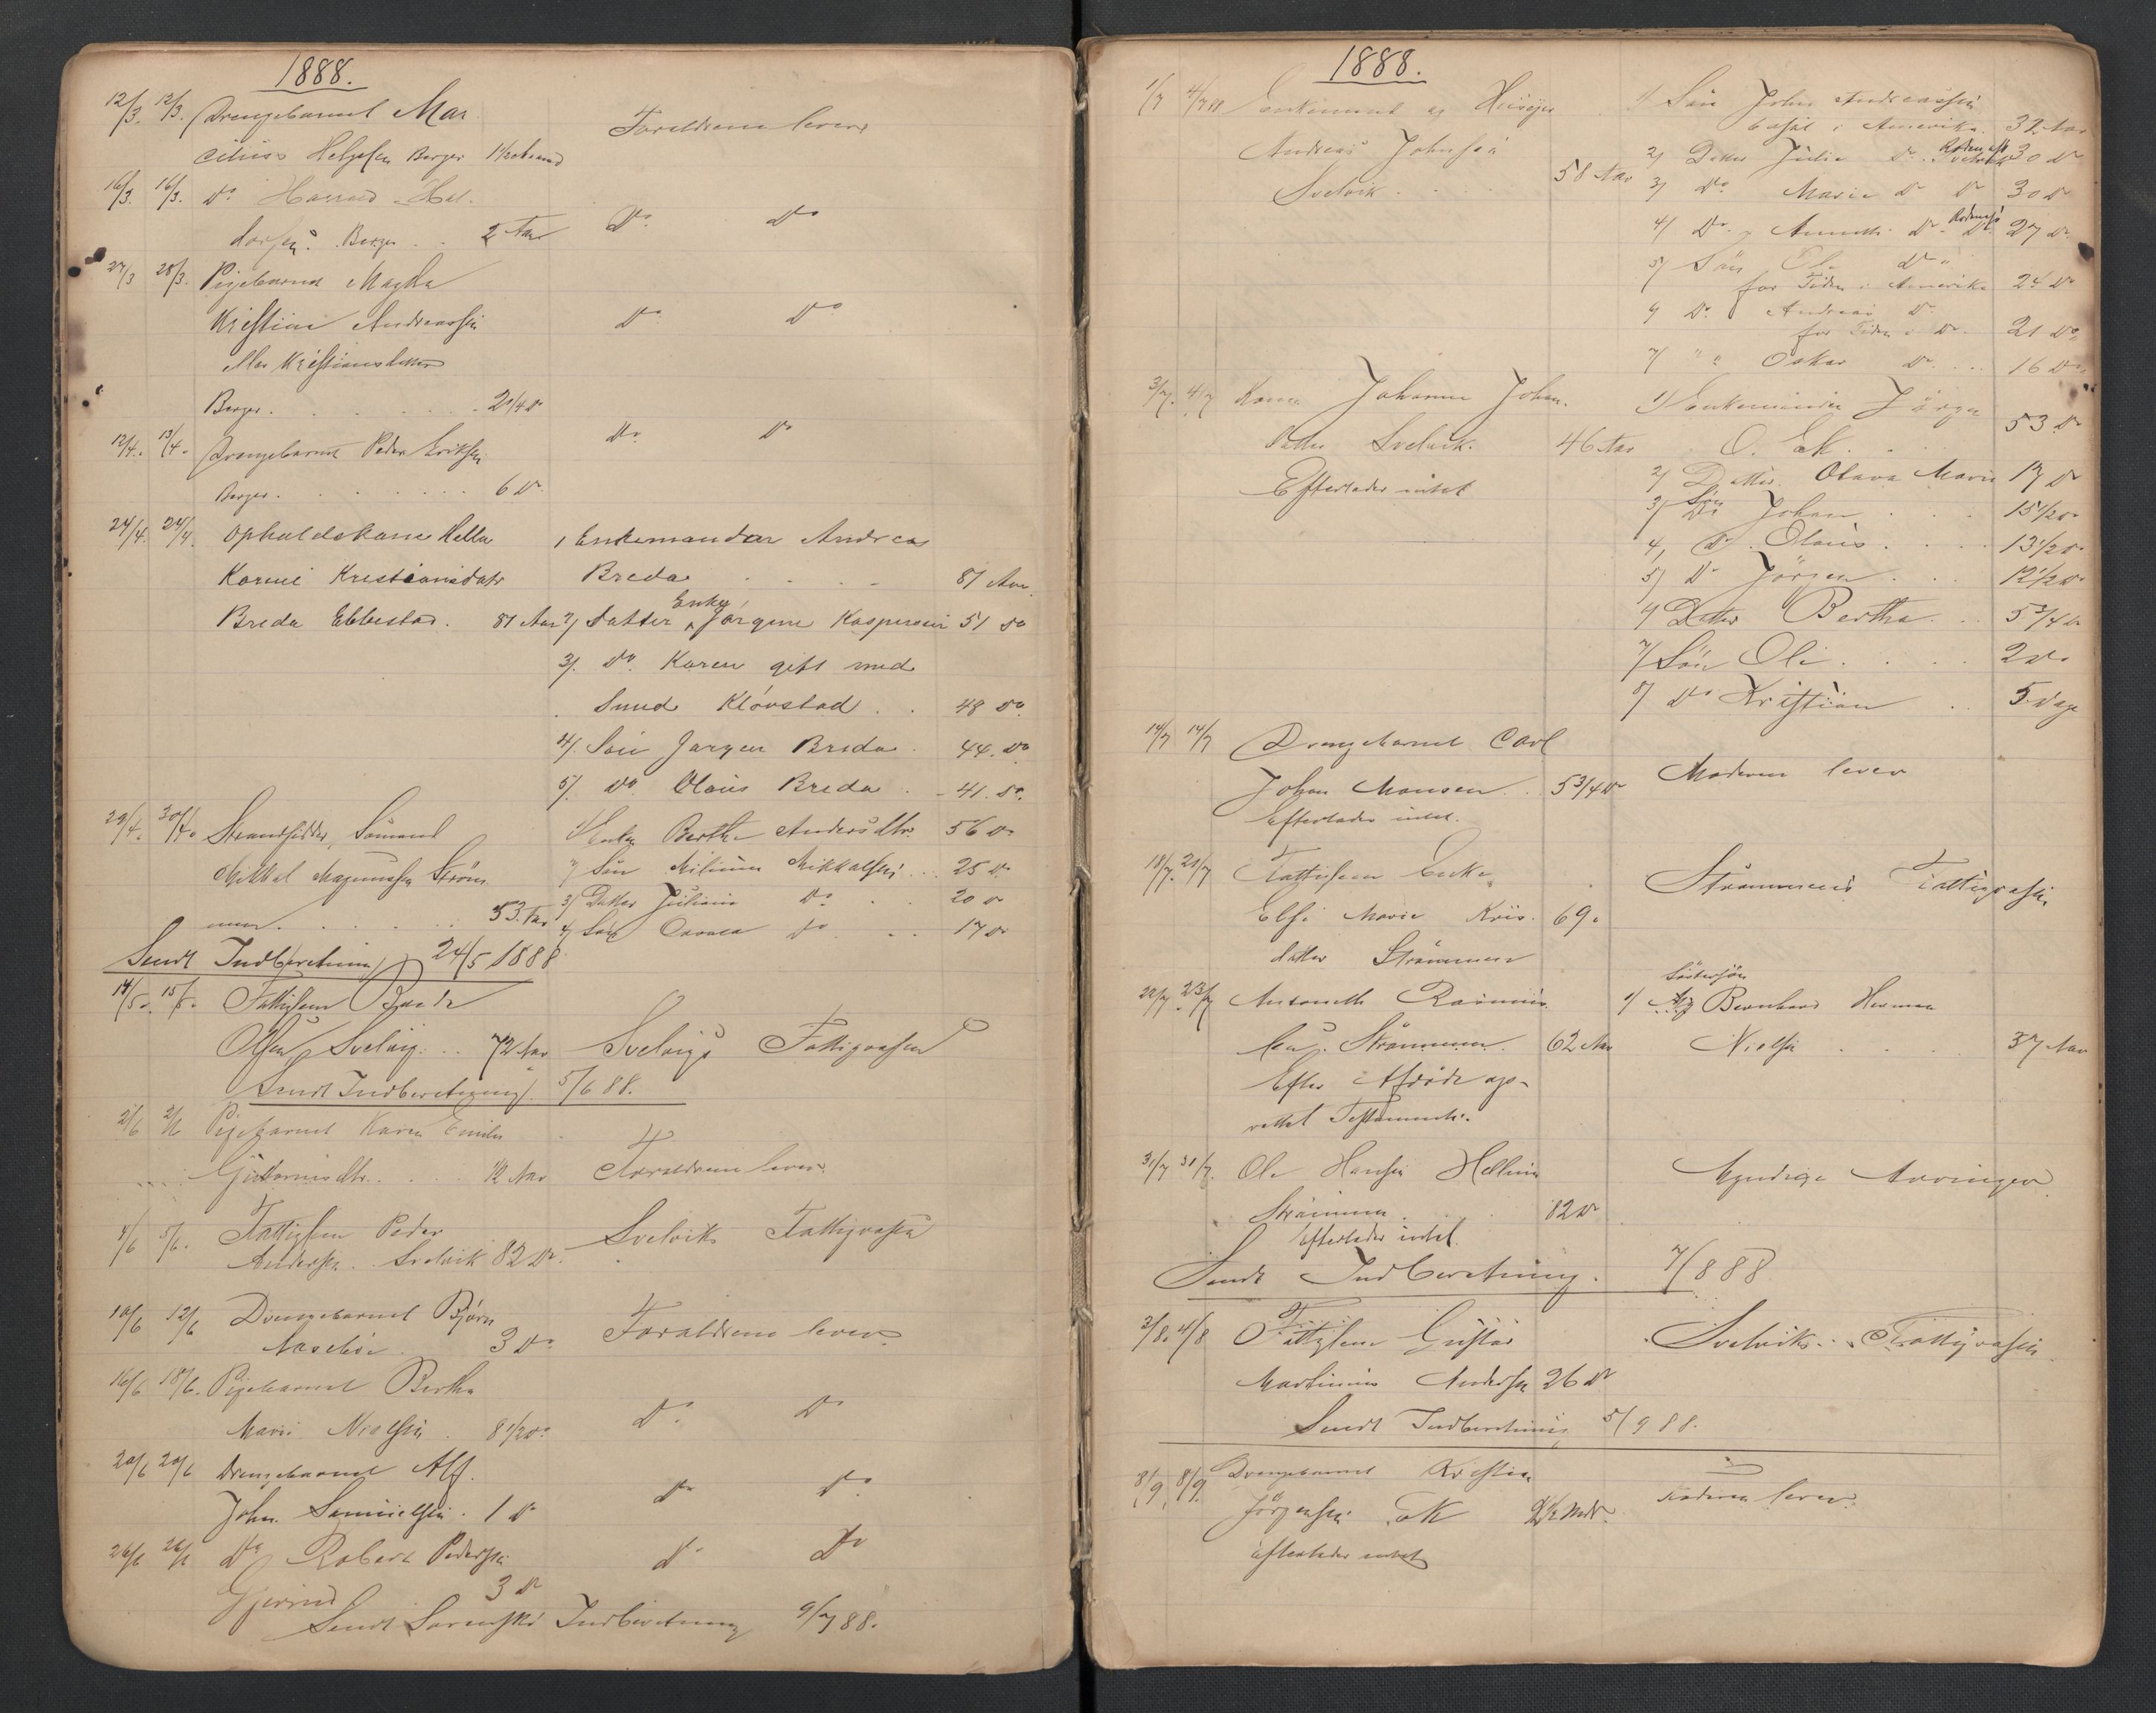 1888.
12/3. 12/3. Drengebarnet Mar-
cilius Helgesen Berger
Forældrene lever
16/3. 16/3. Do Harald Hal-
dorsen Berger . . 2 Aar
Do Do
27/3 28/3. Pigebarnet Magna
Kristine Andreassen
eller Kristiansdatter
Berger. . . . . . 2 1/4 Do
Do Do
12/4. 13/4. Drengebarnet Peder Eriksen
Berger. . . . . . 6 Do
Do Do
24/4. 24/4. Opholdskone Helle
Karine Kristiansdatr
Breda Ebbestad. 87 Aar
1 Enkemanden Andreas
Breda . . . . 87 Aar
2/ Datter Enke Jørgine Kaspersen 51 Do
3/. Do. Karen gift med
Smed Kløvstad . . 48 Do
4/. Søn Jørgen Breda . 44. Do
5/. Do Olaus Breda . 41. Do.
29/4. 30/4. Strandsidder, Sømand
Mikkel Magnussen Strøm-
men . . . . . 53 Aar
1/ Enken Berthe Andersdtr. 56 Do
2/ Søn Milinius Mikkelsen . . 25 Do
3/ Datter Juliane Do . . 20 Do
4/ Søn Do . . 17 Do
Sendt Indberetning 24/5 1888
14/5. 15/5. Fattiglem
Olsen, Svelvig. . . 72 Aar
Svelvigs Fattigvæsen
Sendt Indberetning 5/6 88.
2/6 2/6 Pigebarnet Karen Emilie
Guttormsdtr. . . . 1/2 Aar
Forældrene lever
4/6 5/6. Fattiglem Peder
Andersen . Svelvik 82 Do.
Svelviks Fattigvæsen
10/6 12/6 Drengebarnet Bjørn
3 Do
Forældrene lever
16/6 18/6. Pigebarnet Bertha
Marie Nielsen . 8 1/2 Do
Do. Do
20/6 20/6 Drengebarnet Alf
John Samuelsen . 1 Do
Do Do.
26/6 26/6 Do Robert Pedersen
3 Do
Do Do
Sendt Sorenskr Indberetning 9/7 88.
1888.
1/7 4/7 88 Enkemand og Huseier
Andreas Johnsen
Svelvik . . . . 58 Aar
1/ Søn John Andreassen
bosat i Amerika. 32 Aar
2/ Datter Julie Do. Svelvik 30 Do
3/ Do. Marie Do Do 30 Do
4/ Do. Annette Do. Do. 27 Do.
5/ Søn Ole Do
for Tiden i Amerika 24 Do
6/ Do. Andreas Do.
for Tiden i Do. 21 Do.
7/ " " Oskar Do. . . . 16 Do.
3/7. 4/7 Kone Johanne Johan-
datter Svelvik. 46 Aar
Efterlader intet
1/ Enkemanden Jørgen
O. Ek . . . 53 Do
2/ Datter. Olava Marie 17 Do
3/ Søn Johan . . . 15 1/2 Do
4, Do. Olaus . . . 13 1/2 Do
5/ Do Jørgen . . . 12 1/2 Do
6/ Datter Bertha . . 5 3/4 Do
7/ Søn Ole . . . . 2 Do
8/ Do Kristian . . 5 Dage
14/7 14/7 Drengebarnet Carl
Johan Monsen. . . 5 3/4 Do
Efterlader intet.
Moderen lever
18/7. 21/7 Fattiglem Enke
Else Marie Kris- 69.
datter Strømmen
Strømmens Fattigvæsen.
22/7. 23/7 Antonette Rasmus-
sen. Strømmen. 62 Aar
Efter Afdøde op-
rettet Testamente.
1/ Søstersøn Bernhard Herman
Nielsen . . . . 37 Aar
31/7 31/7. Ole Hansen Hellum
Strømmen . . . 82 Do
Efterlader intet.
Myndige Arvinger
Sendt Indberetning. 7/8 88
3/8. 4/8 Fattiglem Gustav
Martinius Andersen 26 Do
Svelviks Fattigvæsen
Sendt Indberetning 5/9 88.
8/9. 8/9. Drengebarnet Kristian
Jørgensen Ek 2 1/2 Mdr.
Efterlader intet
Faderen lever.